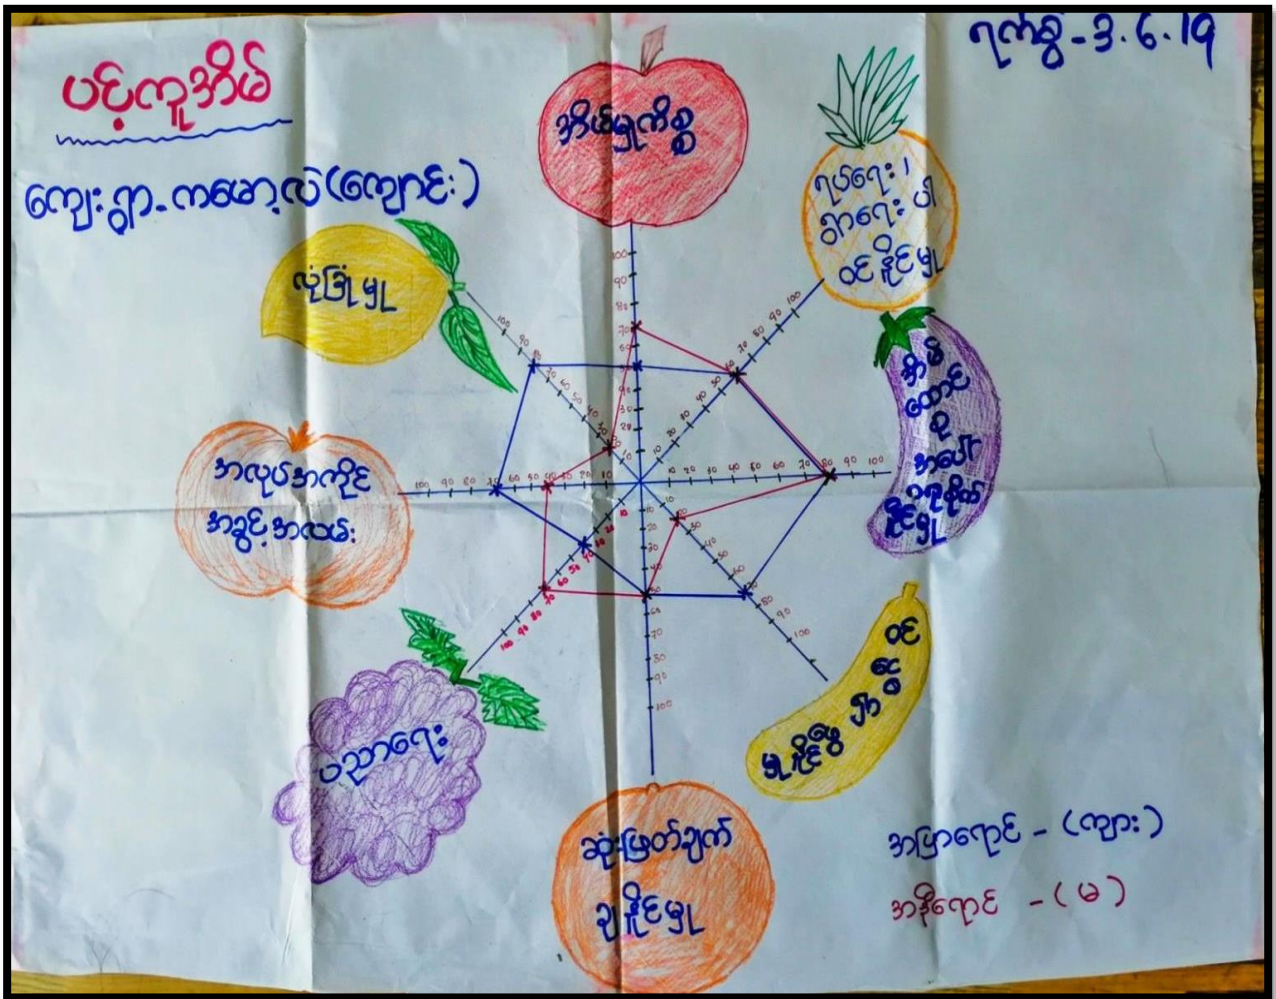 ပင့်ကူအိမ်
ရက်စွဲ - 3.6.19
ကျေးရွာ - ကမော့လ် (ကျောင်း)
အိမ်မှုကိစ္စ
ရပ်ရေး၊
ရွာရေး ပါ
ဝင်နိုင်မှု
လုံခြုံမှု
အိမ်
ထောင်
စု
အပေါ်
နိုင်မှု
အလုပ်အကိုင်
အခွင့်အလမ်း
ဝင်
ငွေ
ရှာ
ဖွေ
နိုင်
မှု
ပညာရေး
ဆုံးဖြတ်ချက်
ချနိုင်မှု
အပြာရောင် - (ကျား)
အနီရောင် - (မ)
100
90
80
70
60
50
40
30
20
10